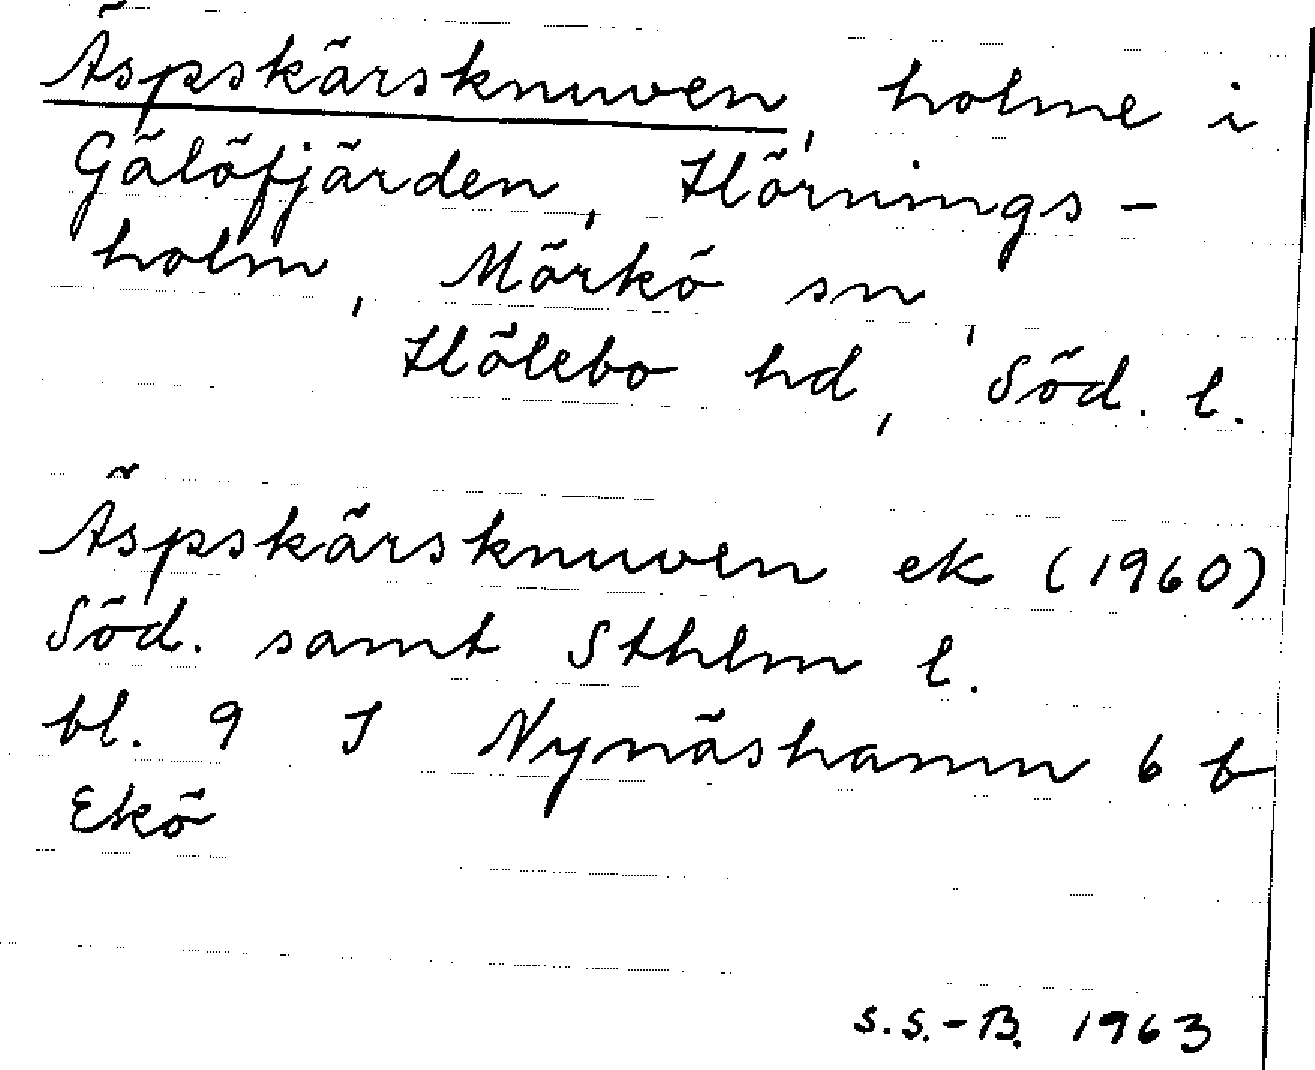 Äspskärsknuven, holme i
Gälöfjärden, Hörnings-
holm, Mörkö sn,
Hölebo hd, Söd. l.
Äspskärsknuven ek (1960)
Söd. samt Sthlm l.
bl. 9 I Nynäshamn 6 b
Ekö
S.S.-B. 1963